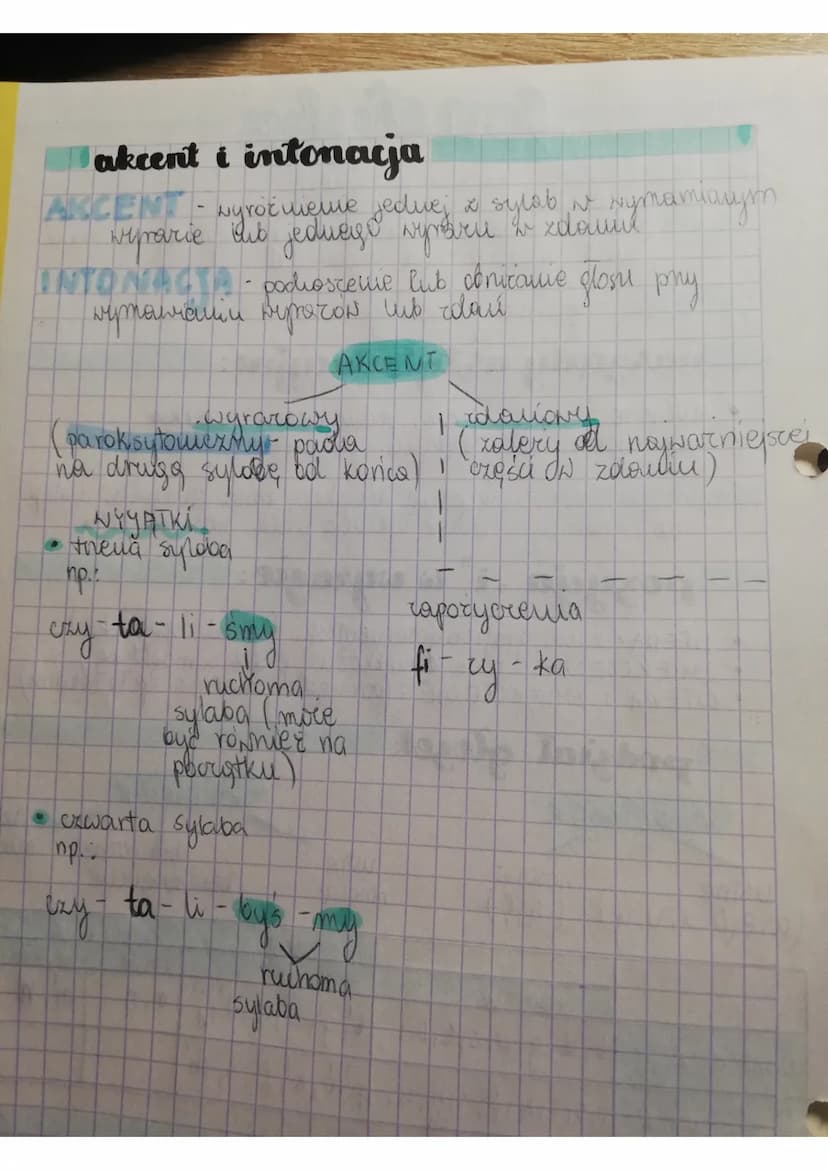 akcent i intonacja
AKCENT - wyróżnienie jednej z sylab w wymawianym
wyrazie lub jednego wyrazu w zdaniu
INTONACJA - podnoszenie lub obniżanie głosu przy
wymawianiu wyrazów lub zdań
AKCENT
wyrazowy
(paroksytoniczny - pada
na drugą sylabę od końca)
zdaniowy
(zależy od najważniejszej
części w zdaniu)
WYJĄTKI
• trzecia sylaba
np.:
czy - ta - li - śmy
ruchoma
sylaba (może
być również na
początku)
zapożyczenia
fi - zy - ka
• czwarta sylaba
np.:
czy - ta - li - byś - my
ruchoma
sylaba